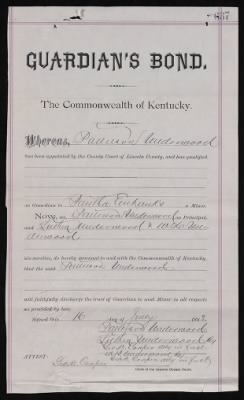 GUARDIAN'S BOND.
The Commonwealth of Kentucky.
Whereas, Patterson Underwood
has been appointed by the County Court of Lincoln County, and has qualified
as Guardian to a Minor.
Now, we, Patterson Underwood as Principal,
and Luther Underwood & W. D. Un-
derwood
as sureties, do hereby covenant to and with the Commonwealth of Kentucky,
that the said Patterson Underwood
will faithfully discharge the trust of Guardian to said Minor in all respects
as provided by law.
Signed this 16 day of
Patterson Underwood
Luther Underwood By
Geo. B. Cooper Atty in fact
W. D. Underwood By
Geo. B. Cooper Atty in fact
ATTEST:
Geo. B. Cooper
Clerk of the Lincoln County Court.